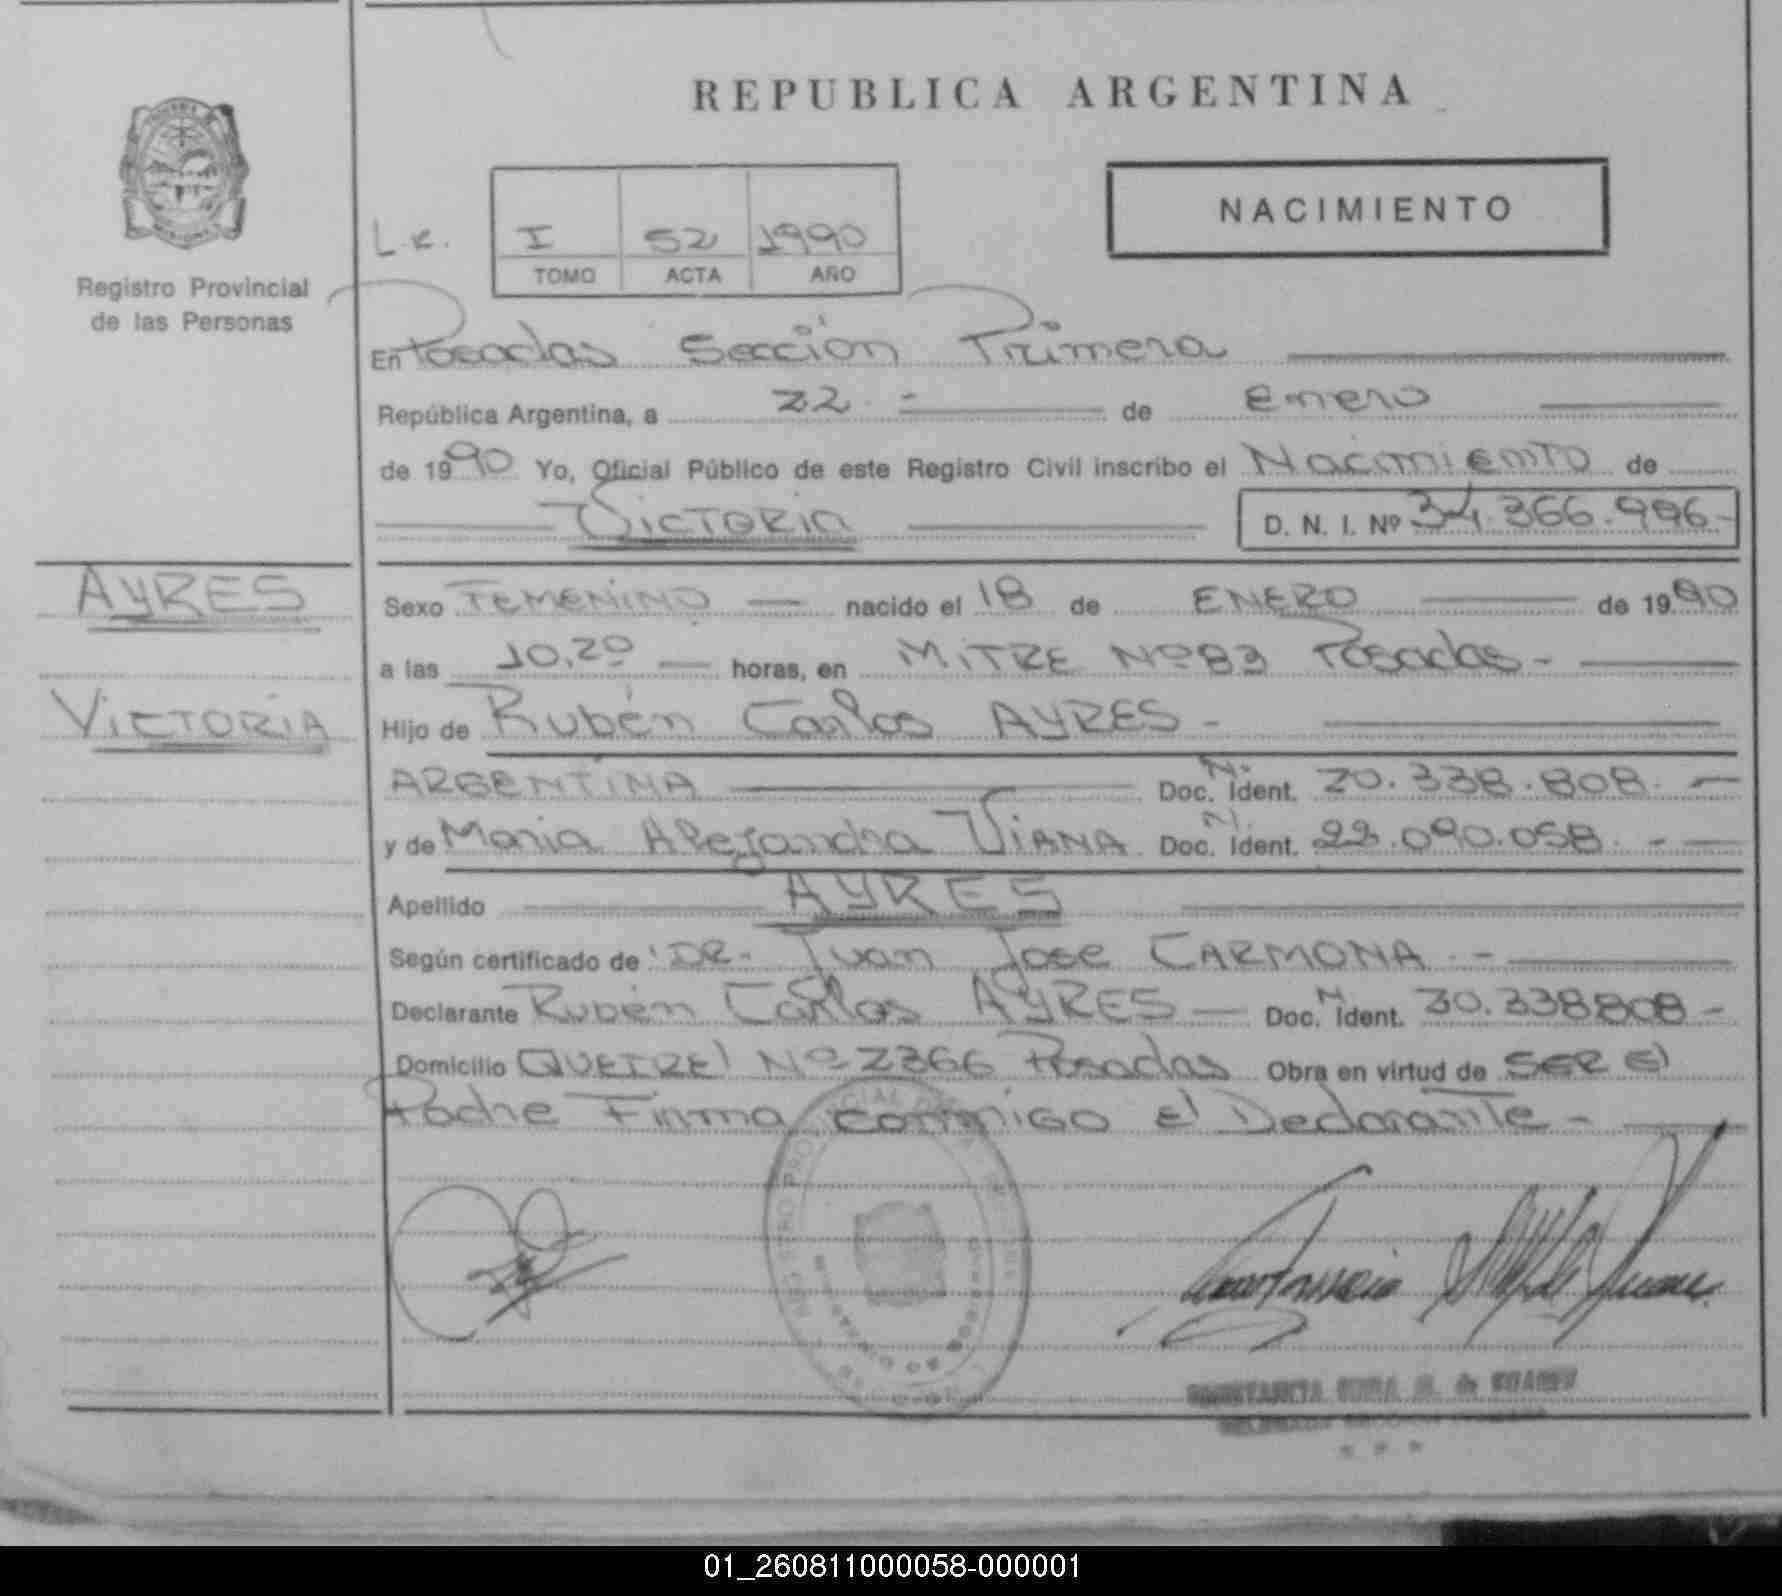 REPUBLICA ARGENTINA
NACIMIENTO
L.c.
I 52 1990
TOMO ACTA AÑO
Registro Provincial
de las Personas
En Posadas Sección Primera
República Argentina, a 22 - de Enero
de 1990 Yo, Oficial Público de este Registro Civil inscribo el Nacimiento de
VICTORIA D. N. I. Nº 34.366.996-
AYRES
VICTORIA
Sexo FEMENINO nacido el 18 de ENERO de 1990
a las 10,20 horas, en MITRE Nº 83 Posadas -
Hijo de Rubén Carlos AYRES -
ARGENTINA Doc. N. Ident. 20.338.808.
y de Maria Alejandra VIANA Doc. N. Ident. 22.090.058. -
Apellido AYRES
Según certificado de: DR. Juan Jose CARMONA. -
Declarante Rubén Carlos AYRES Doc. N Ident. 20.338808 -
Domicilio Nº 2366 Posadas Obra en virtud de SER El
Padre Firma conmigo el Declarante -
01_260811000058-000001